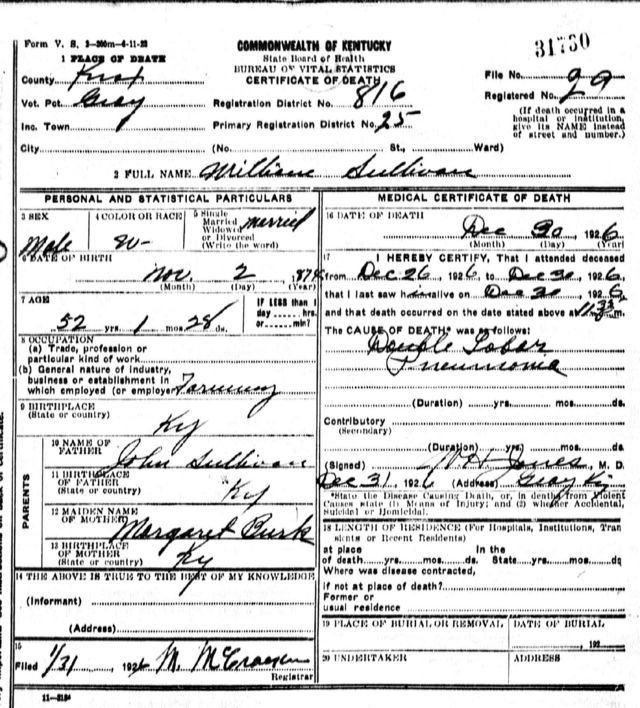 31760
Form V. S. 3-200m-4-11-23
COMMONWEALTH OF KENTUCKY
State Board of Health
BUREAU OF VITAL STATISTICS
CERTIFICATE OF DEATH
1 PLACE OF DEATH
County Knox
File No.
Vot. Pct. Gray
Registration District No. 816
Registered No. 29
Inc. Town
Primary Registration District No. 25
(If death occurred in a
hospital or institution,
give its NAME instead
of street and number.)
City (No. St., Ward)
2 FULL NAME William Sullivan
PERSONAL AND STATISTICAL PARTICULARS
3 SEX
Male
4 COLOR OR RACE
W
5 Single
Married
Widowed
or Divorced
(Write the word)
Married
6 DATE OF BIRTH
Nov. 2 1874
(Month) (Day) (Year)
7 AGE
52 yrs. 1 mos. 28 ds.
IF LESS than 1
day hrs.
or min?
8 OCCUPATION
(a) Trade, profession or
particular kind of work
(b) General nature of industry,
business or establishment in
which employed (or employer Farming
9 BIRTHPLACE
(State or country)
Ky
PARENTS
10 NAME OF
FATHER
John Sullivan
11 BIRTHPLACE
OF FATHER
(State or country)
Ky
12 MAIDEN NAME
OF MOTHER
Margaret Burk
13 BIRTHPLACE
OF MOTHER
(State or country)
Ky
14 THE ABOVE IS TRUE TO THE BEST OF MY KNOWLEDGE
(Informant)
(Address)
15
Filed 1/31, 1926 M. McCracken
Registrar
11-3184
MEDICAL CERTIFICATE OF DEATH
16 DATE OF DEATH
Dec 30 1926
(Month) (Day) (Year)
17 I HEREBY CERTIFY, That I attended deceased
from Dec 26 1926 to Dec 30 1926,
that I last saw h alive on Dec 30 1926,
and that death occurred on the date stated above at m.
The CAUSE OF DEATH* was as follows:
Double Lobar
Pneumonia
(Duration) yrs. mos. ds.
Contributory
(Secondary)
(Duration) yrs. mos. ds.
(Signed) Jones, M. D.
Dec 31, 1926 (Address) Gray Ky
*State the Disease Causing Death, or, in deaths from Violent
Causes state (1) Means of Injury; and (2) whether Accidental,
Suicidal or Homicidal.
18 LENGTH OF RESIDENCE (For Hospitals, Institutions, Tran
sients or Recent Residents)
at place In the
of death yrs. mos. ds. State yrs. mos. ds
Where was disease contracted,
if not at place of death?
Former or
usual residence
19 PLACE OF BURIAL OR REMOVAL
DATE OF BURIAL
, 192
20 UNDERTAKER
ADDRESS